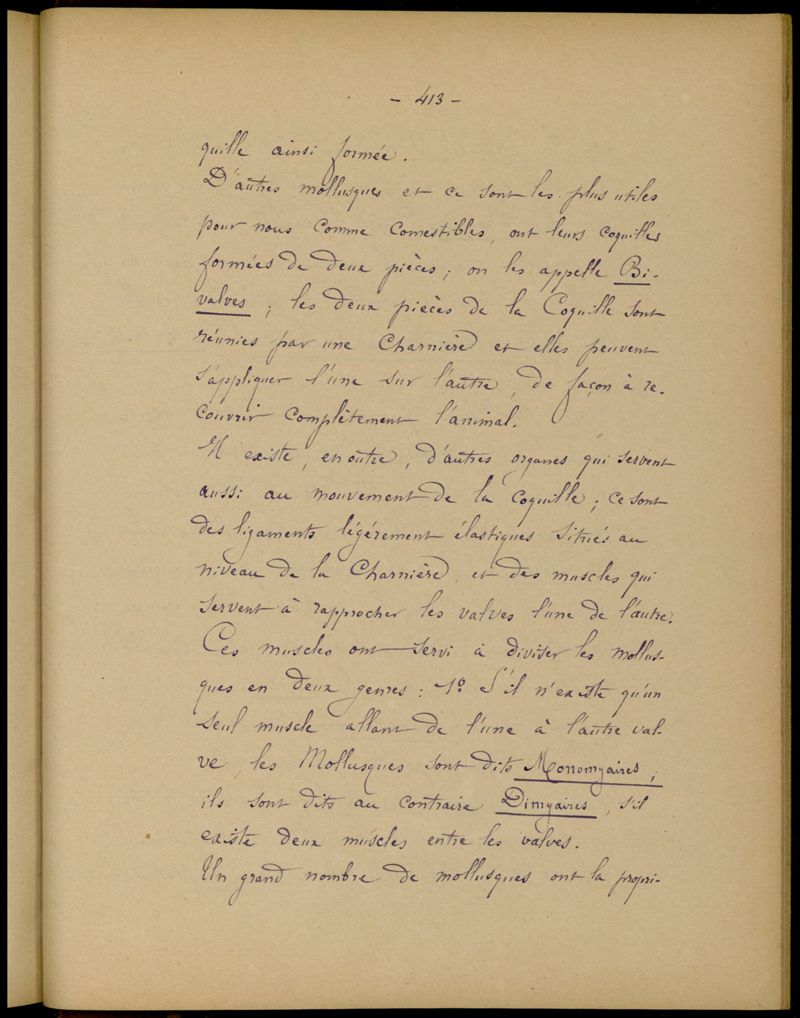 - 413 -
quille ainsi formée.
D'autres mollusques et ce sont les plus utiles
pour nous comme comestibles, ont leurs coquilles
formées de deux pièces; on les appelle Bi-
valves; les deux pièces de la Coquille sont
réunies par une Charnière et elles peuvent
s'appliquer l'une sur l'autre, de façon à re-
couvrir complètement l'animal.
Il existe, en outre, d'autres organes qui servent
aussi au mouvement de la coquille; ce sont
des ligaments légérement élastiques situés au
niveau de la Charnière, et des muscles qui
servent à rapprocher les valves l'une de l'autre.
Ces muscles ont servi à diviser les mollus-
ques en deux genres: 1º S'il n'existe qu'un
seul muscle allant de l'une à l'autre val-
ve, les Mollusques sont dits Monomyaires;
ils sont dits au contraire Dimyaires, s'il
existe deux muscles entre les valves.
Un grand nombre de mollusques ont la propri-